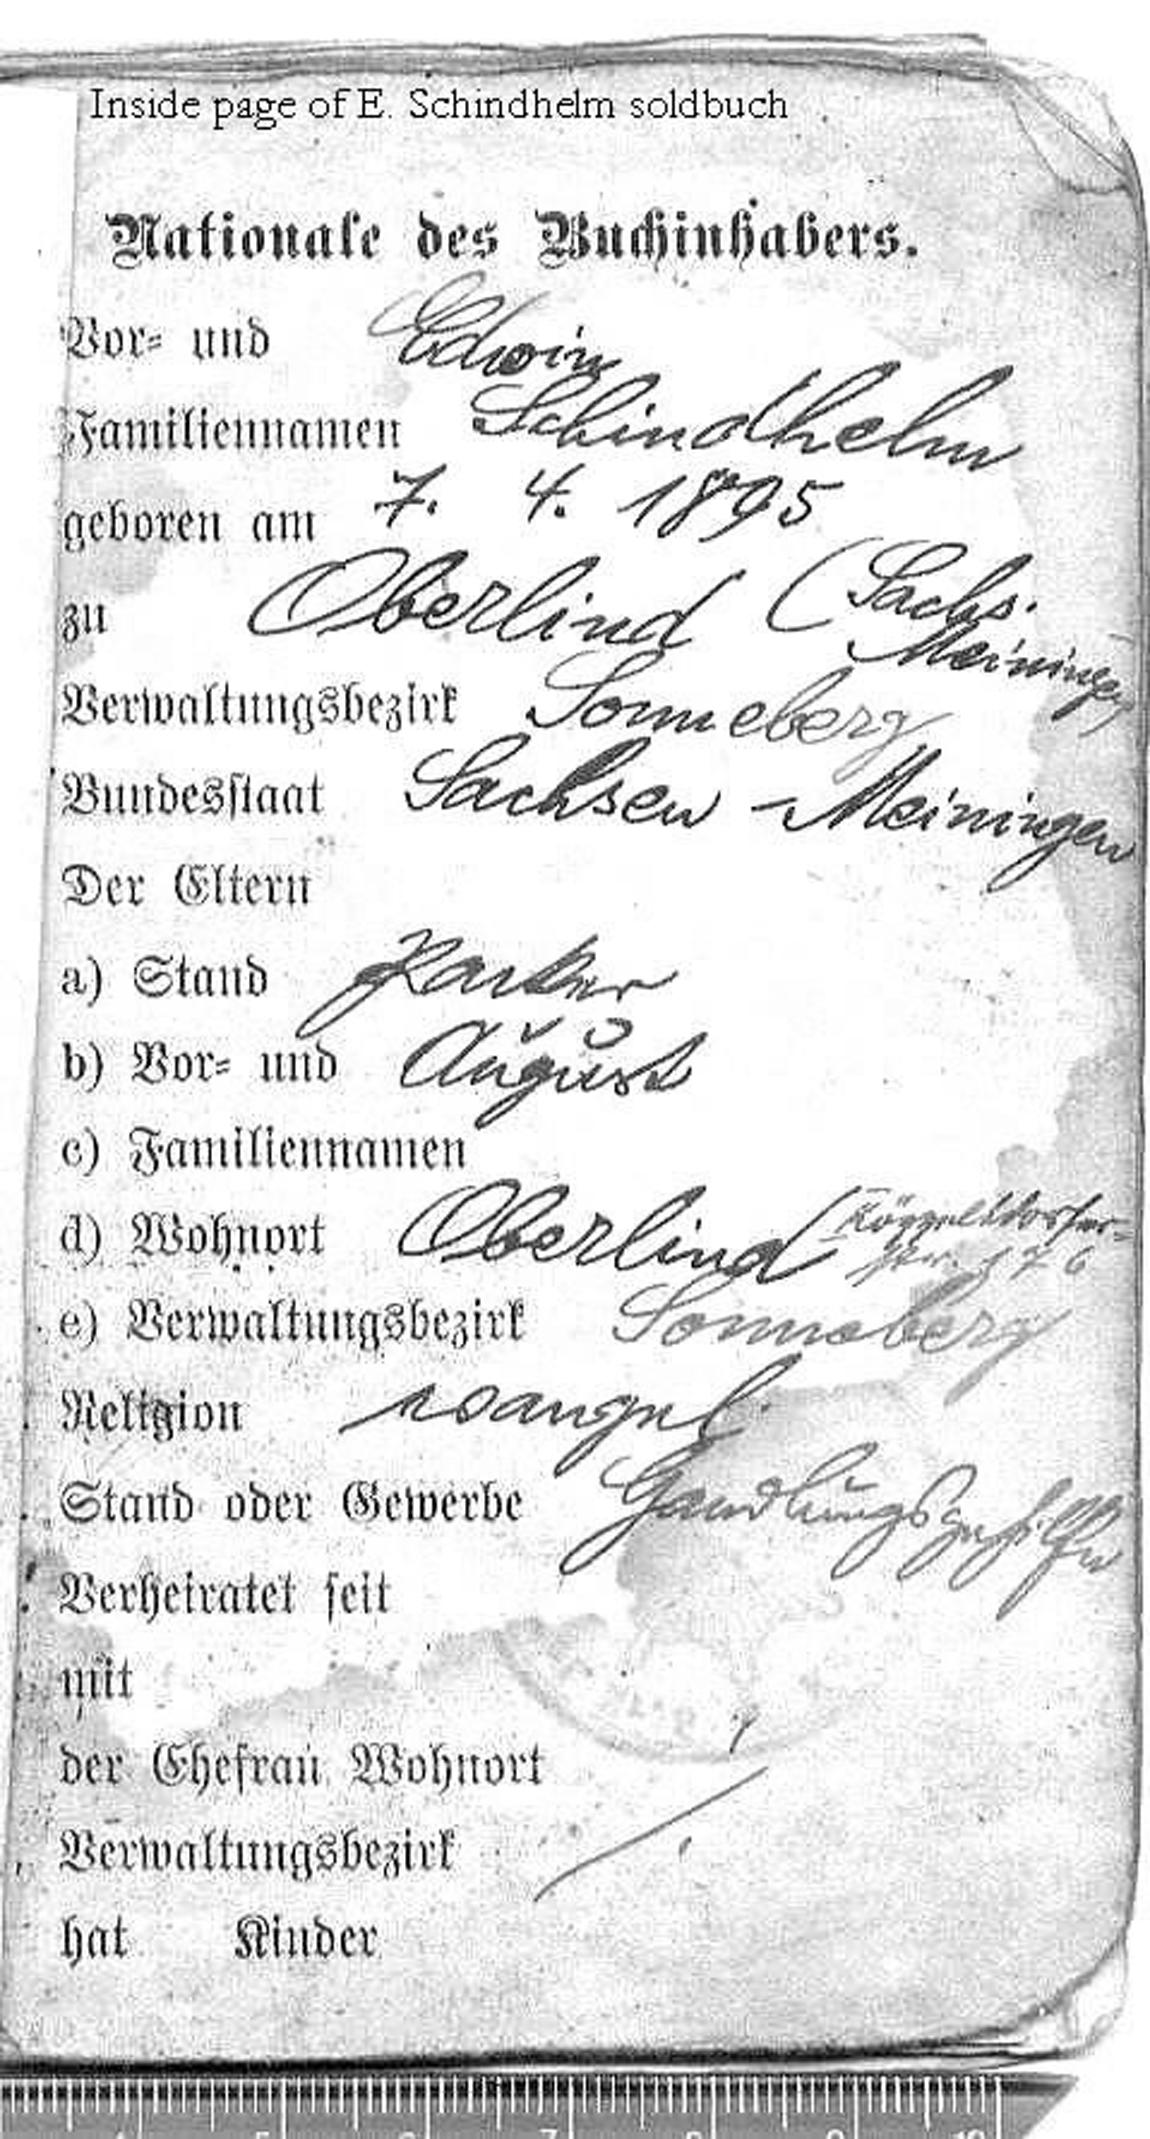 Inside page of E. Schindhelm soldbuch
Nationale des Buchinhabers.
Vor- und Edwin
Familiennamen Schindhelm
geboren am 7. 4. 1895
zu Oberlind (Sachs.
Meiningen)
Verwaltungsbezirk Sonneberg
Bundesstaat Sachsen - Meiningen
Der Eltern
a) Stand
b) Vor- und August
c) Familiennamen
d) Wohnort Oberlind (Köppelsdorfer-
str.
e) Verwaltungsbezirk Sonneberg
Religion evangel.
Stand oder Gewerbe Handlungsgehilfe
Verheiratet seit
mit
der Ehefrau Wohnort
Verwaltungsbezirk
hat Kinder
4 5 6 7 8 9 10